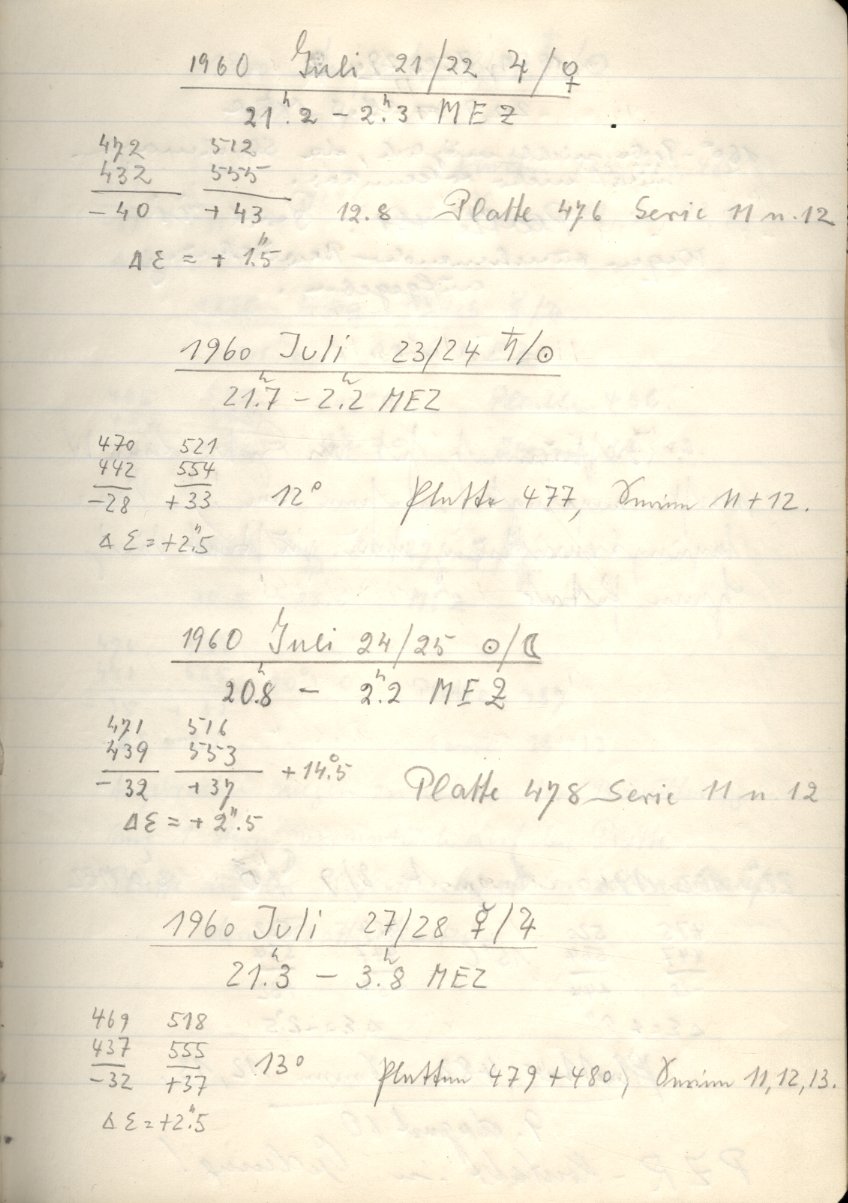 1960 Juli 21/22 ♃/♀
21ʰ.2 – 2ʰ.3 MEZ
472 512
432 555
-40 +43 12.8 Platte 476 Serie 11 u. 12
Δε = + 1".5
1960 Juli 23/24 ♄/☉
21ʰ.7 – 2ʰ.2 MEZ
470 521
442 554
-28 +33 12° Platte 477, Serien 11 + 12.
Δε = +2".5
1960 Juli 24/25 ☉/☾
20ʰ.8 – 2ʰ.2 MEZ
471 516
439 553
-32 +37 +14°.5 Platte 478 Serie 11 u 12
Δε = + 2".5
1960 Juli 27/28 ☿/♃
21ʰ.3 – 3ʰ.8 MEZ
469 518
437 555
-32 +37 13° Platten 479+480, Serien 11, 12, 13.
Δε = +2".5